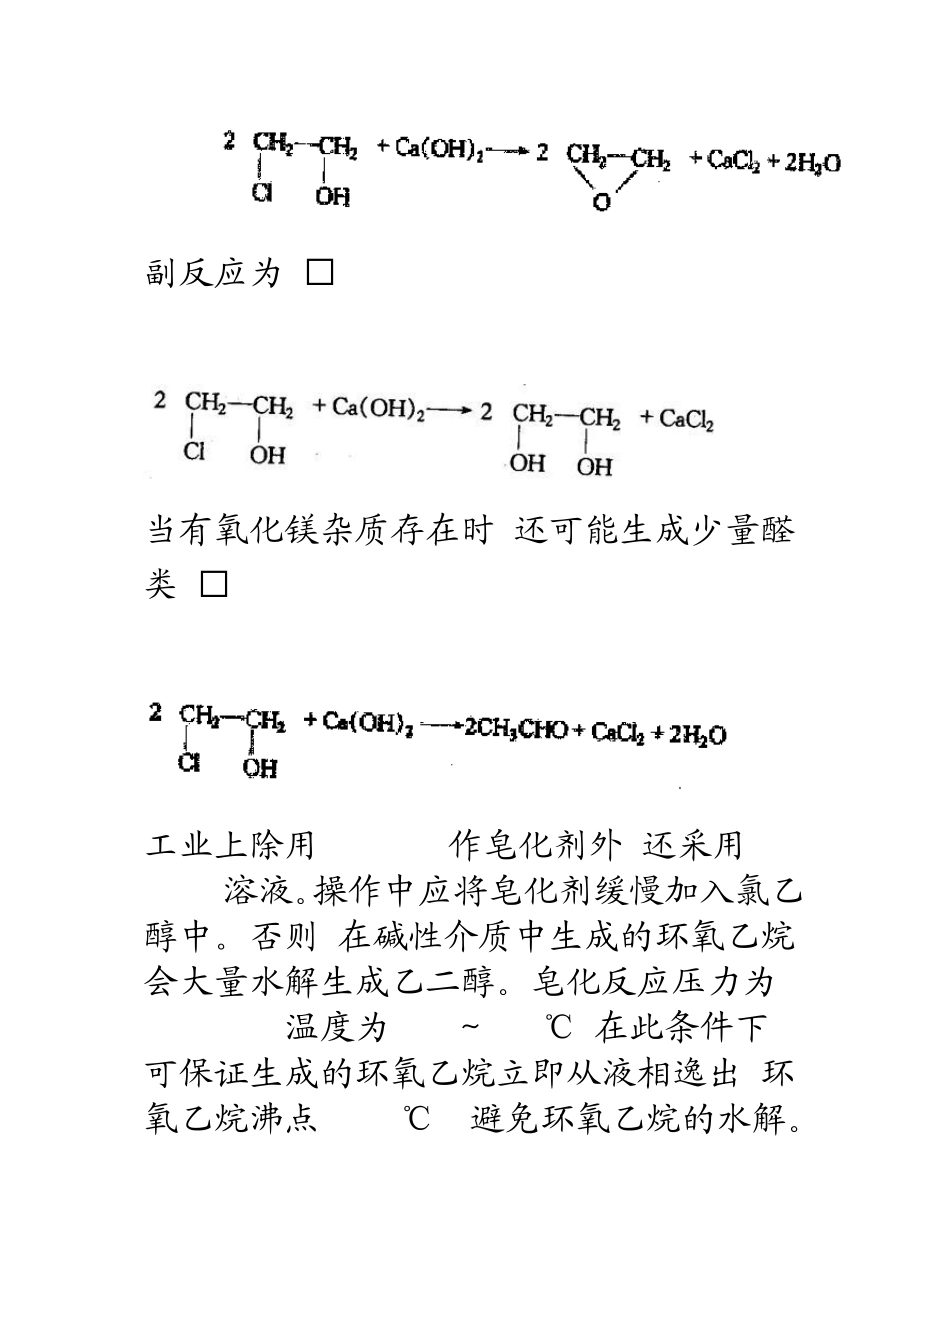 2 CH₂—CH₂ + Ca(OH)₂ → 2 CH₂—CH₂ + CaCl₂ + 2H₂O
Cl OH O
副反应为 □
2 CH₂—CH₂ + Ca(OH)₂ → 2 CH₂—CH₂ + CaCl₂
Cl OH OH OH
当有氧化镁杂质存在时 还可能生成少量醛
类 □
2 CH₂—CH₂ + Ca(OH)₂ → 2CH₃CHO + CaCl₂ + 2H₂O
Cl OH
工业上除用 作皂化剂外 还采用
溶液。操作中应将皂化剂缓慢加入氯乙
醇中。否则 在碱性介质中生成的环氧乙烷
会大量水解生成乙二醇。皂化反应压力为
温度为 ~ ℃ 在此条件下
可保证生成的环氧乙烷立即从液相逸出 环
氧乙烷沸点 ℃ 避免环氧乙烷的水解。